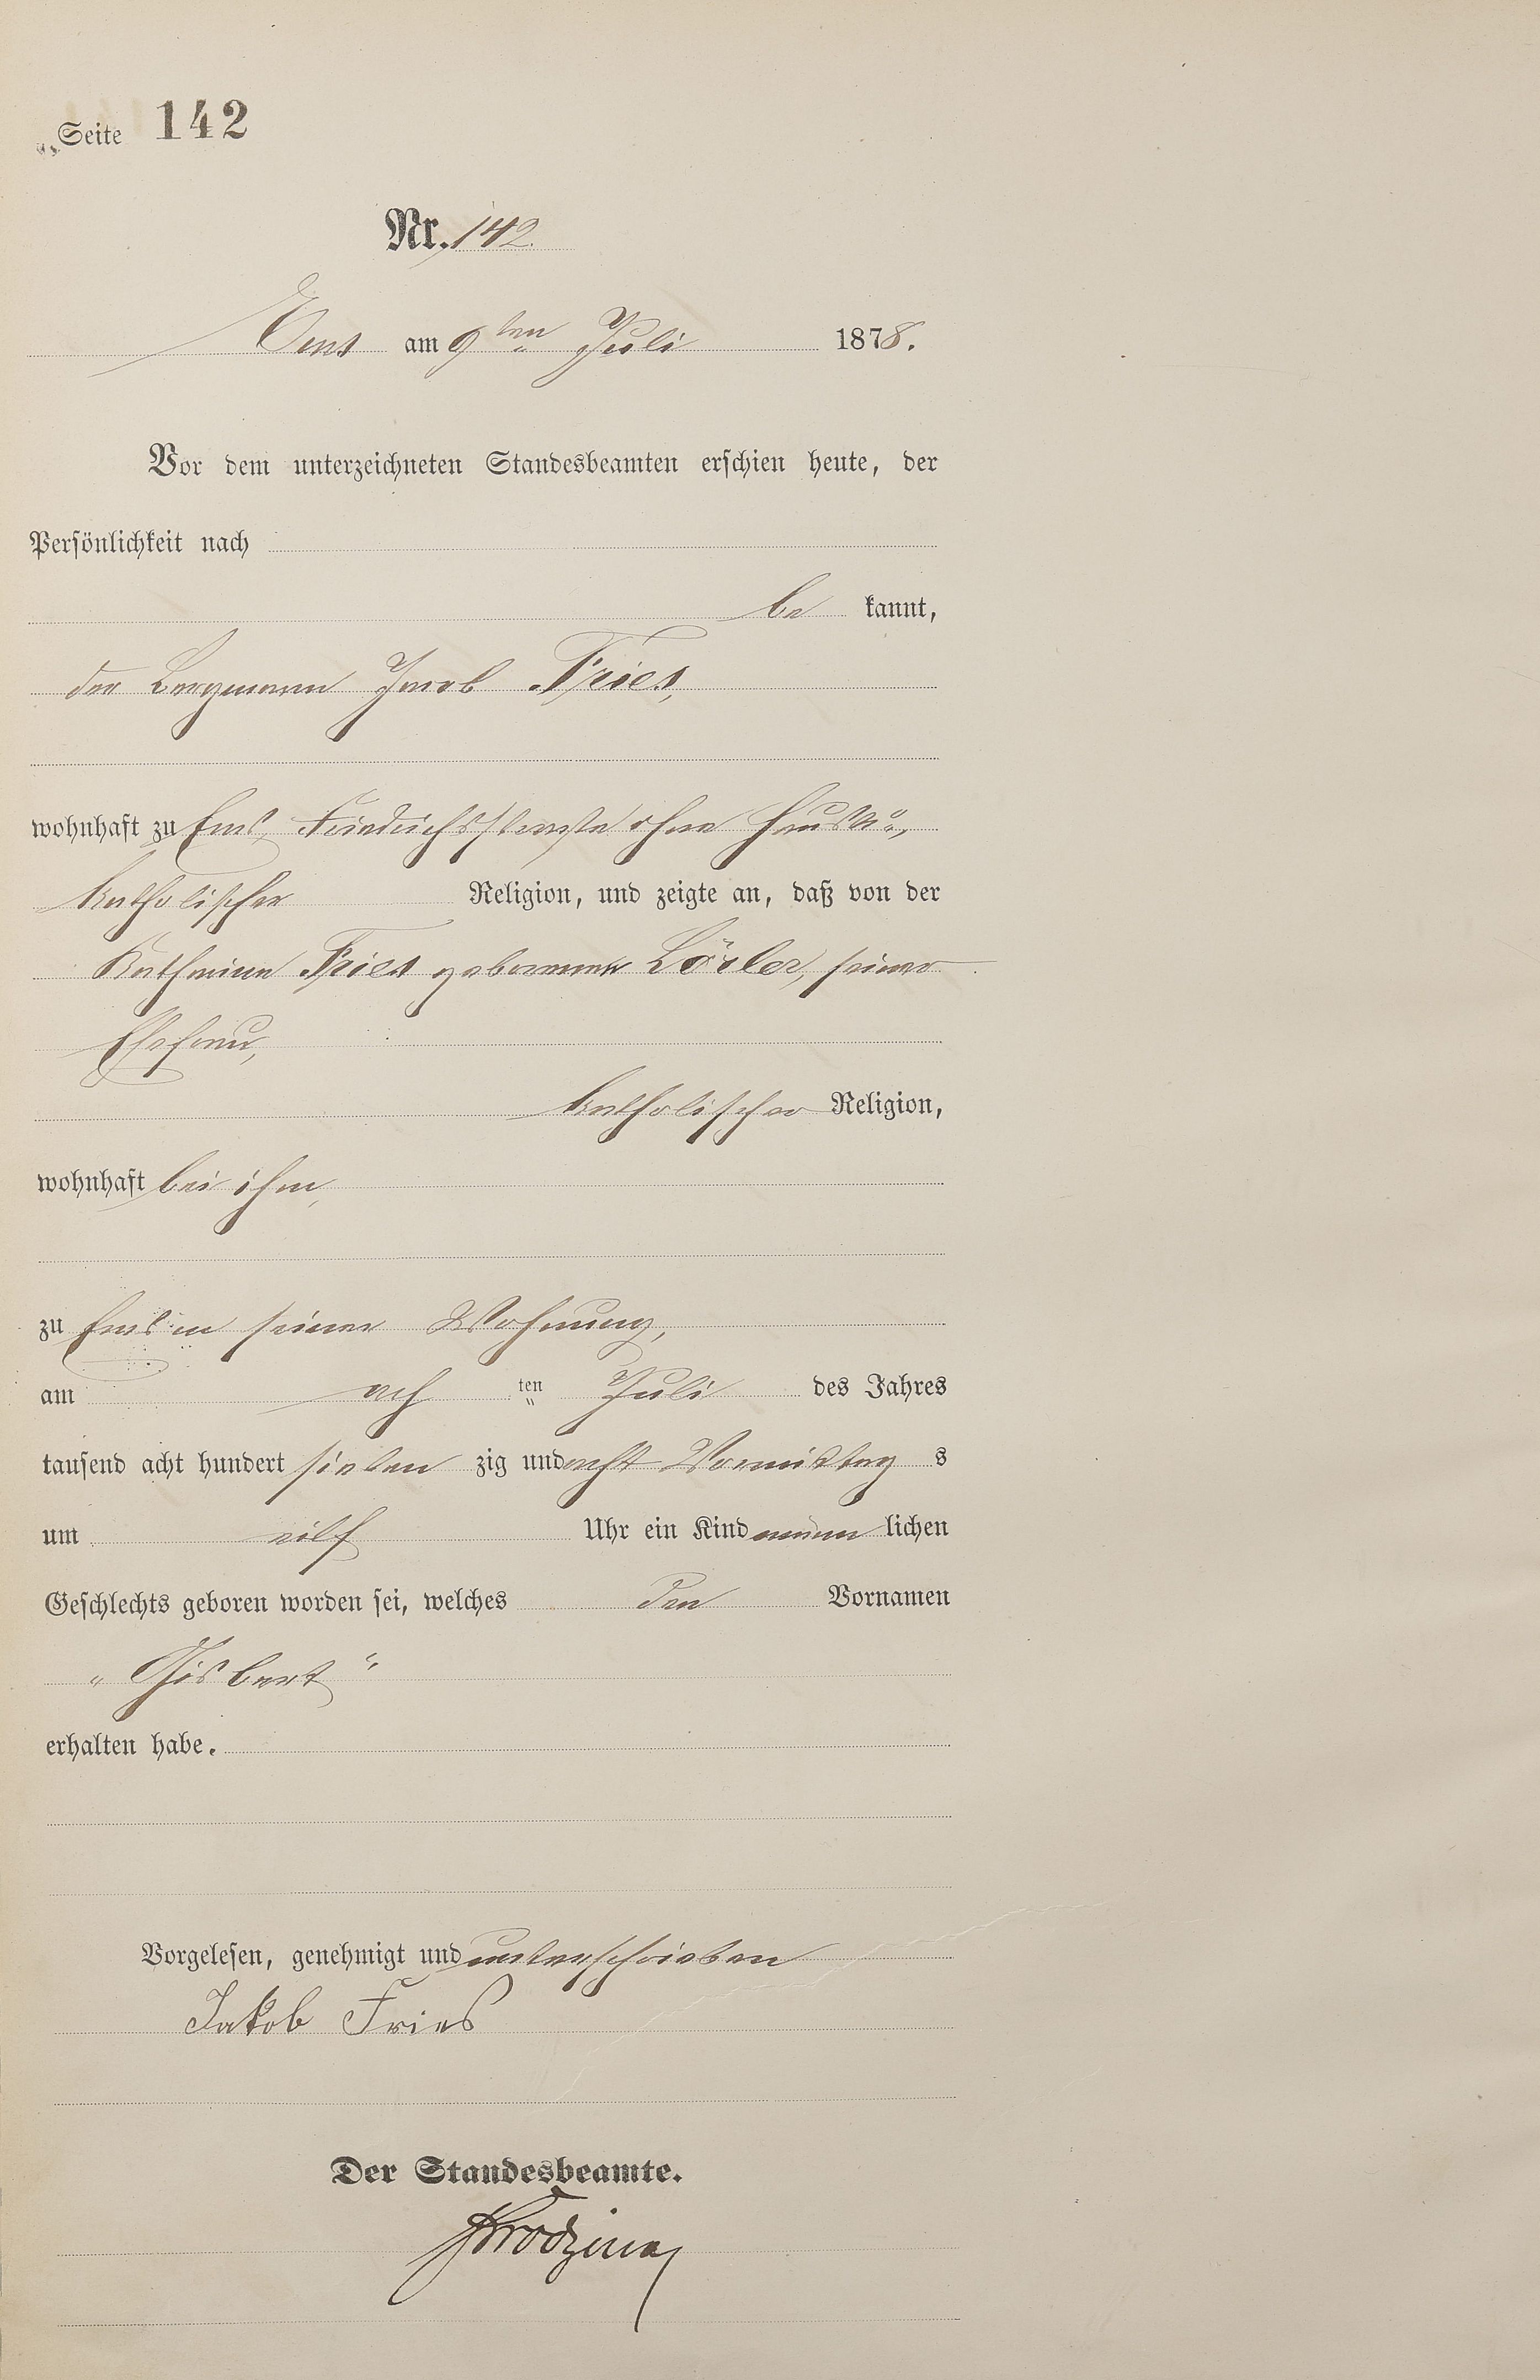 Seite 142
Nr. 142.
Ems am 9ten Juli 1878.
Vor dem unterzeichneten Standesbeamten erschien heute, der
Persönlichkeit nach
be kannt,
der Bergmann Jacob Fries,
wohnhaft zu Ems, Friedrichsstraße ohne Haus№,
katholischer Religion, und zeigte an, daß von der
Katharina Fries geborenen Lösler, seiner
Ehefrau,
katholischer Religion,
wohnhaft bei ihm,
zu Ems in seiner Wohnung,
am ach ten Juli des Jahres
tausend acht hundert sieben zig und acht Vormittag s
um eilf Uhr ein Kind männ lichen
Geschlechts geboren worden sei, welches den Vornamen
„Gisbert“
erhalten habe.
Vorgelesen, genehmigt und unterschrieben
Jakob Fries
Der Standesbeamte.